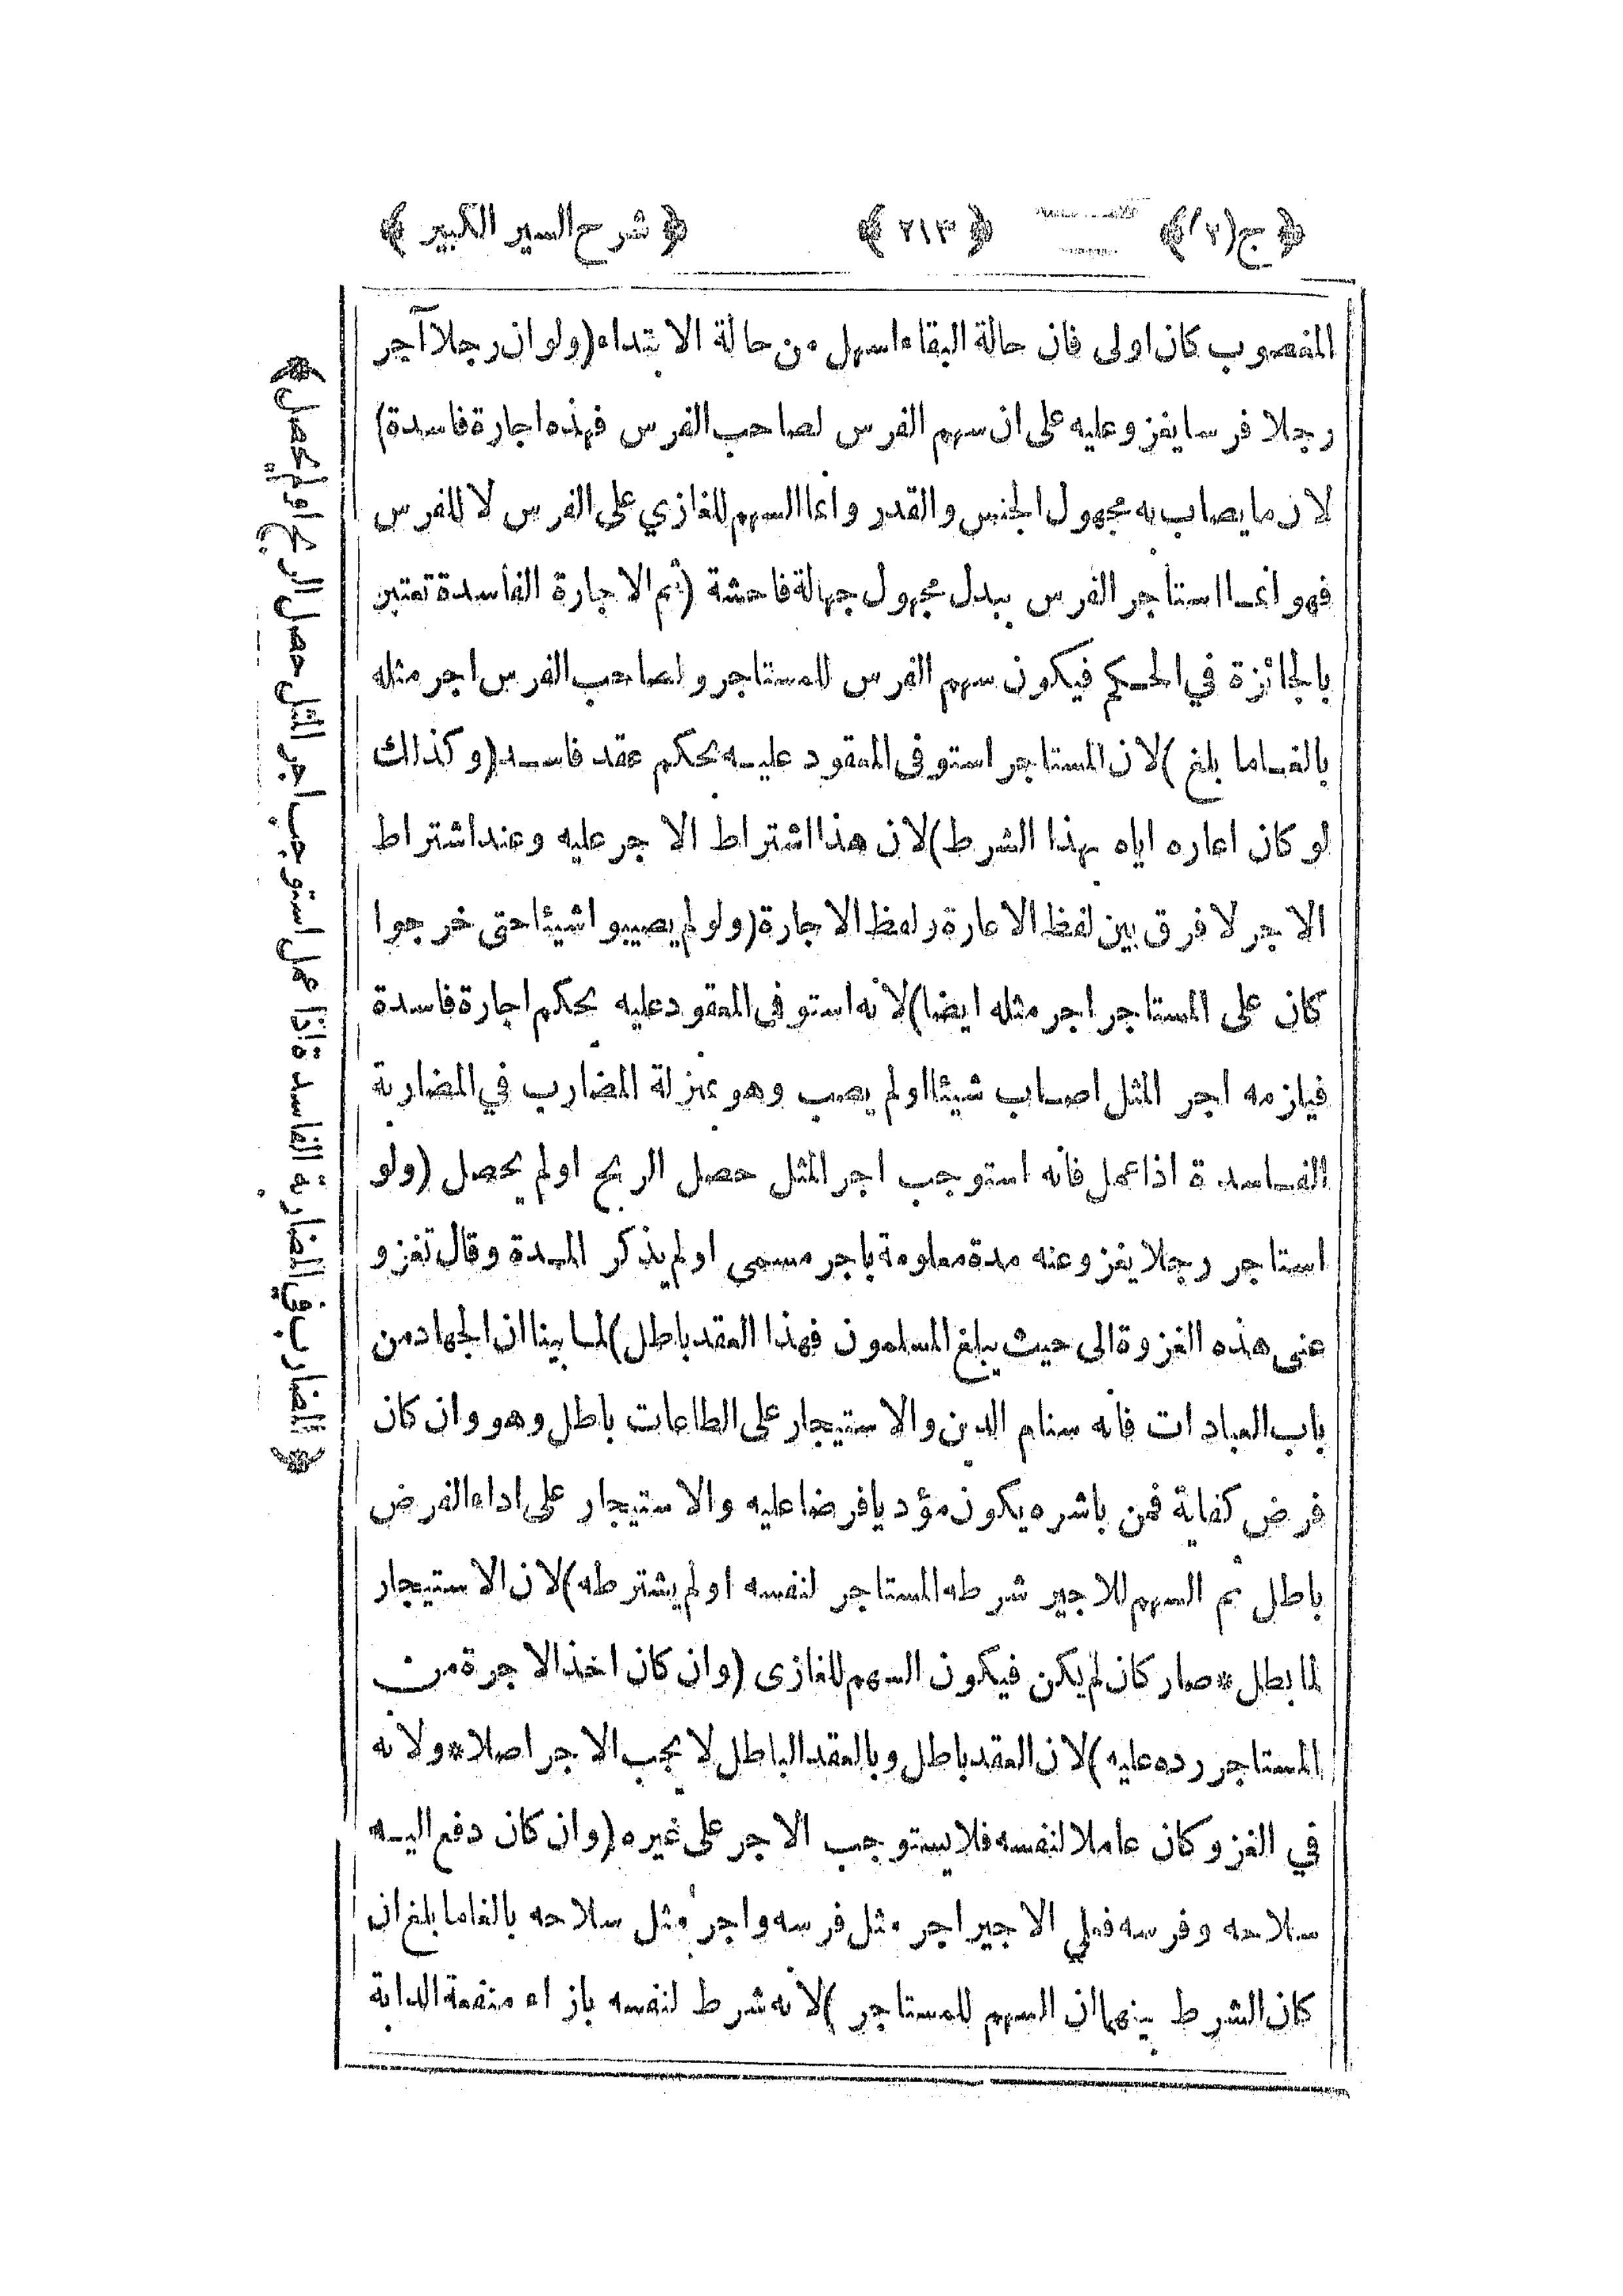 ﴿ج(٢)﴾ ﴿٢١٣﴾ ﴿شرح السير الكبير﴾
المغصوب كان اولى فان حالة البقاء اسهل من حالة الابتداء (ولو ان رجلا آجر
رجلا فرسا يغزو عليه على ان سهم الفرس لصاحب الفرس فهذه اجارة فاسدة)
لان ما يصاب به مجهول الجنس والقدر وانما السهم للغازي على الفرس لا للفرس
فهو انما استأجر الفرس ببدل مجهول جهالة فاحشة (ثم الاجارة الفاسدة تعتبر
بالجائزة في الحكم فيكون سهم الفرس للمستاجر ولصاحب الفرس اجر مثله
بالغا ما بلغ) لان المستاجر استوفى المعقود عليه بحكم عقد فاسد (وكذلك
لو كان اعاره اياه بهذا الشرط) لان هذا اشتراط الاجر عليه وعند اشتراط
الاجر لا فرق بين لفظ الاعارة ولفظ الاجارة (ولو لم يصيبوا شيئا حتى خرجوا
كان على المستاجر اجر مثله ايضا) لانه استوفى المعقود عليه بحكم اجارة فاسدة
فيلزمه اجر المثل اصاب شيئا او لم يصب وهو بمنزلة المضارب في المضاربة
الفاسدة اذا عمل فانه استوجب اجر المثل حصل الربح او لم يحصل (ولو
استاجر رجلا يغزو عنه مدة معلومة باجر مسمى او لم يذكر المدة وقال تغزو
عنى هذه الغزوة الى حيث يبلغ المسلمون فهذا العقد باطل) لما بينا ان الجهاد من
باب العبادات فانه سنام الدين والاستيجار على الطاعات باطل وهو وان كان
فرض كفاية فمن باشره يكون مؤديا فرضا عليه والاستيجار على اداء الفرض
باطل ثم السهم للاجير شرطه المستاجر لنفسه او لم يشترطه) لان الاستيجار
لما بطل * صار كان لم يكن فيكون السهم للغازى (وان كان اخذ الاجرة من
المستاجر رده عليه) لان العقد باطل وبالعقد الباطل لا يجب الاجر اصلا * ولانه
في الغزو كان عاملا لنفسه فلا يستوجب الاجر على غيره (وان كان دفع اليه
سلاحه وفرسه فعلى الاجير اجر مثل فرسه واجر مثل سلاحه بالغا ما بلغ ان
كان الشرط بينهما ان السهم للمستاجر) لانه شرط لنفسه بازاء منفعة الدابة
﴿المضارب في المضاربة الفاسدة اذا عمل استوجب اجر المثل حصل الربح او لم يحصل﴾